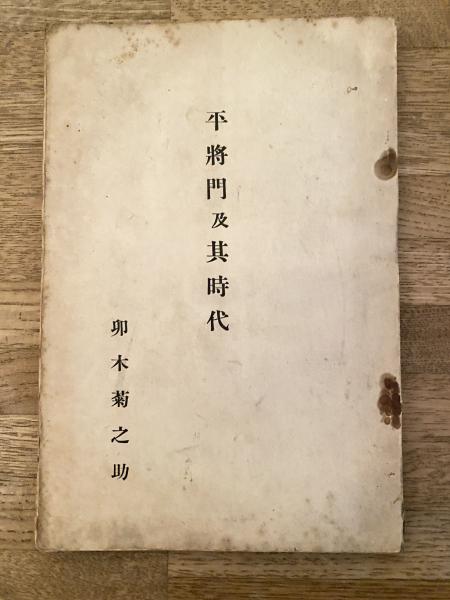 平將門及其時代
卯木菊之助